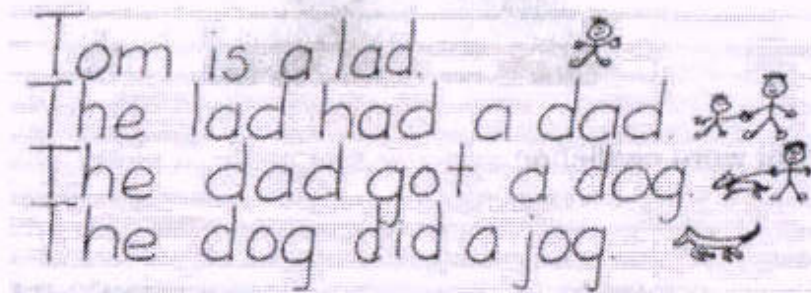 Tom is a lad.
The lad had a dad.
The dad got a dog.
The dog did a jog.